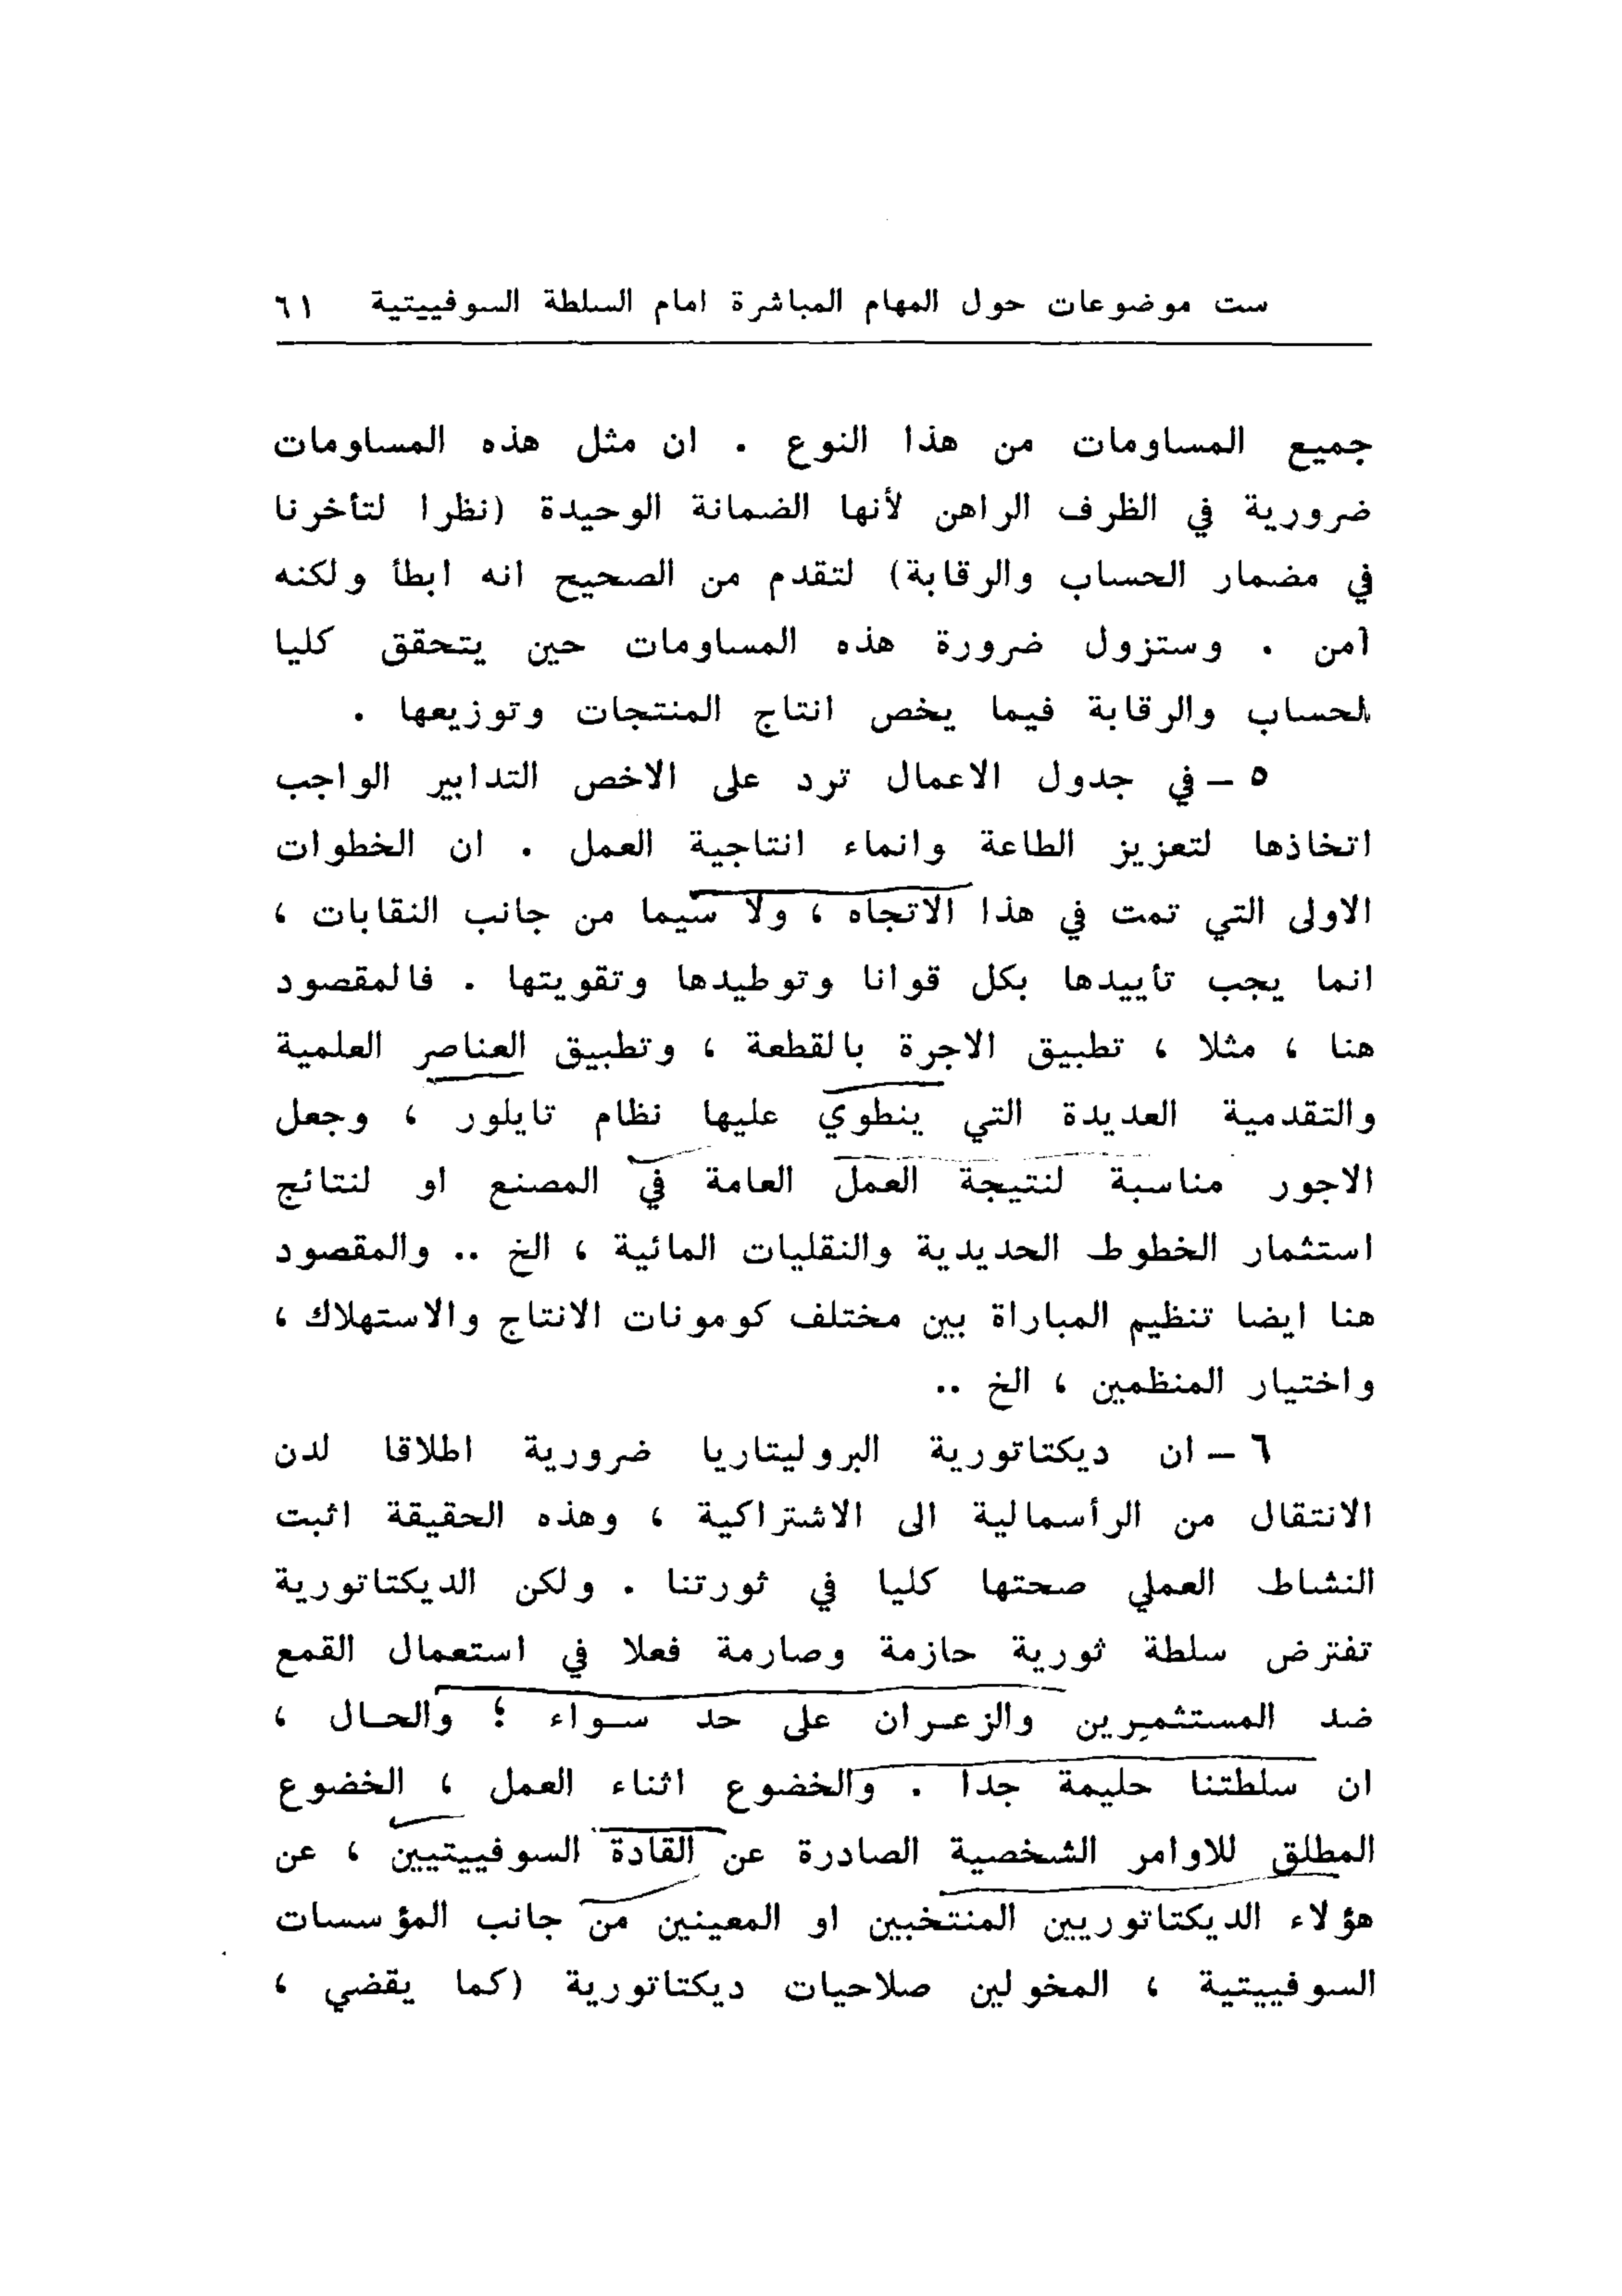 ست موضوعات حول المهام المباشرة امام السلطة السوفييتية ٦١
جميع المساومات من هذا النوع . ان مثل هذه المساومات
ضرورية في الظرف الراهن لأنها الضمانة الوحيدة (نظرا لتأخرنا
في مضمار الحساب والرقابة) لتقدم من الصحيح انه ابطأ ولكنه
آمن . وستزول ضرورة هذه المساومات حين يتحقق كليا
الحساب والرقابة فيما يخص انتاج المنتجات وتوزيعها .
٥ – في جدول الاعمال ترد على الاخص التدابير الواجب
اتخاذها لتعزيز الطاعة وانماء انتاجية العمل . ان الخطوات
الاولى التي تمت في هذا الاتجاه ، ولا سيما من جانب النقابات ،
انما يجب تأييدها بكل قوانا وتوطيدها وتقويتها . فالمقصود
هنا ، مثلا ، تطبيق الاجرة بالقطعة ، وتطبيق العناصر العلمية
والتقدمية العديدة التي ينطوي عليها نظام تايلور ، وجعل
الاجور مناسبة لنتيجة العمل العامة في المصنع او لنتائج
استثمار الخطوط الحديدية والنقليات المائية ، الخ .. والمقصود
هنا ايضا تنظيم المباراة بين مختلف كومونات الانتاج والاستهلاك ،
واختيار المنظمين ، الخ ..
٦ – ان ديكتاتورية البروليتاريا ضرورية اطلاقا لدن
الانتقال من الرأسمالية الى الاشتراكية ، وهذه الحقيقة اثبت
النشاط العملي صحتها كليا في ثورتنا . ولكن الديكتاتورية
تفترض سلطة ثورية حازمة وصارمة فعلا في استعمال القمع
ضد المستثمرين والزعران على حد سواء ؛ والحال ،
ان سلطتنا حليمة جدا . والخضوع اثناء العمل ، الخضوع
المطلق للاوامر الشخصية الصادرة عن القادة السوفييتيين ، عن
هؤلاء الديكتاتوريين المنتخبين او المعينين من جانب المؤسسات
السوفييتية ، المخولين صلاحيات ديكتاتورية (كما يقضي ،